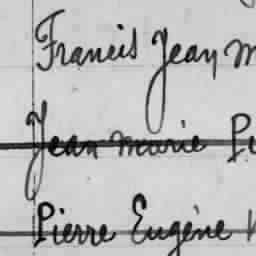 Francis Jean M
Jean Marie Pi
Pierre Eugène